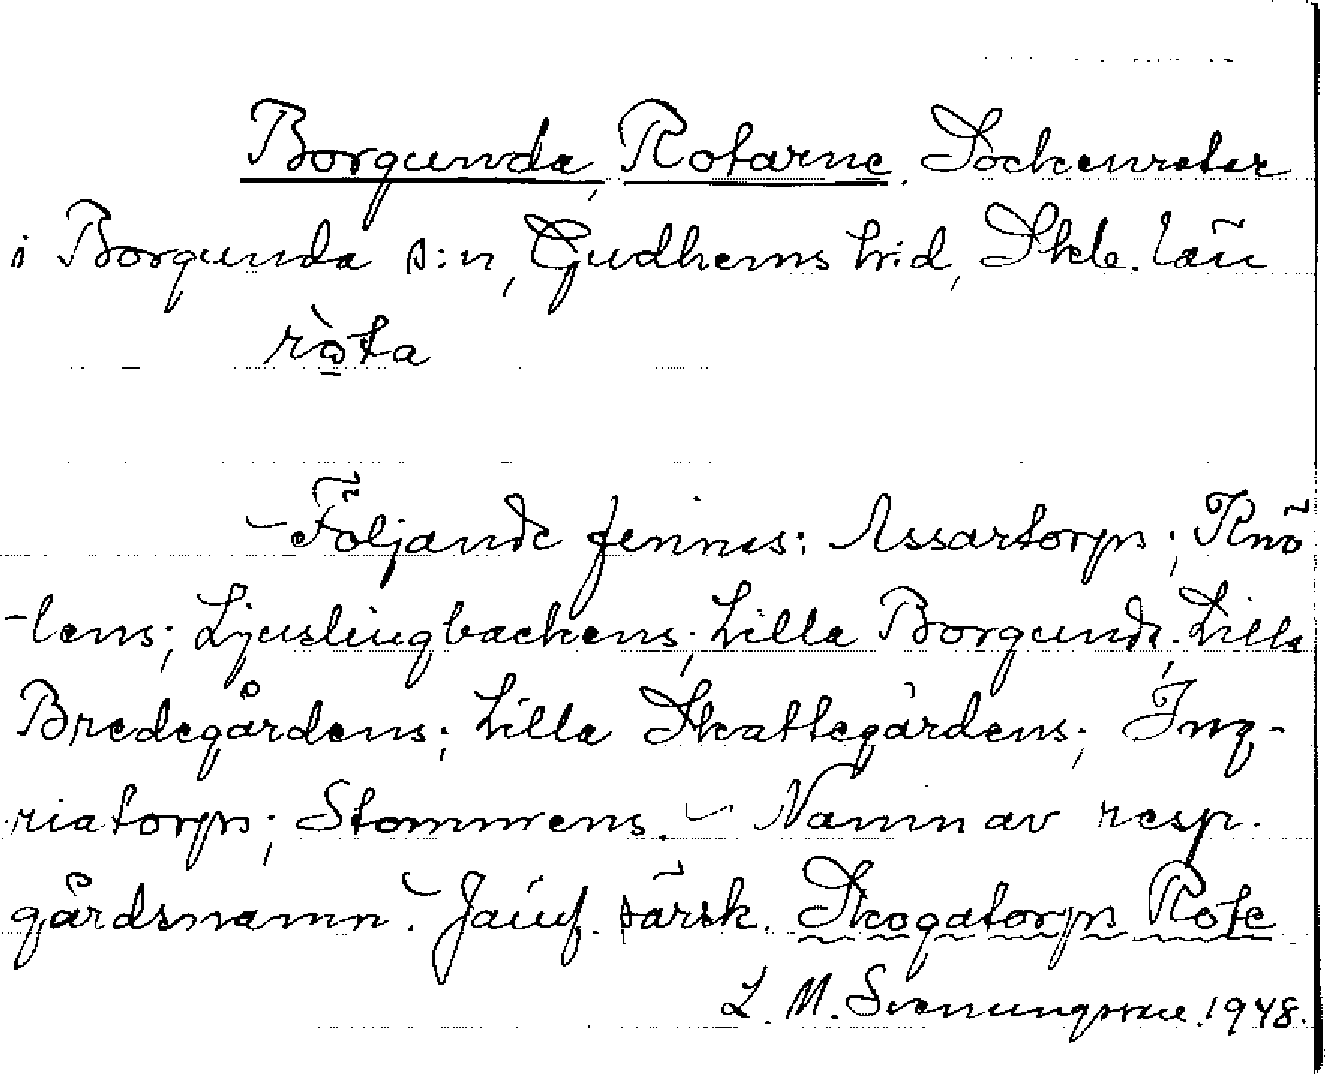 Borgunda, Rotarne. Sockenrotar
i Borgunda s:n, Gudhems h:d, Skb. län
ròta
– Följande finnes: Assartorps; Knö
-lens; Ljuslingbackens; Lilla Borgunda; Lilla
Bredegårdens; Lilla Skattegårdens; Ing-
riatorps; Stommens. – Namn av resp.
gårdsnamn. – Jämf. särsk. Skogatorps Rote
L. M. Svenungsson. 1948.